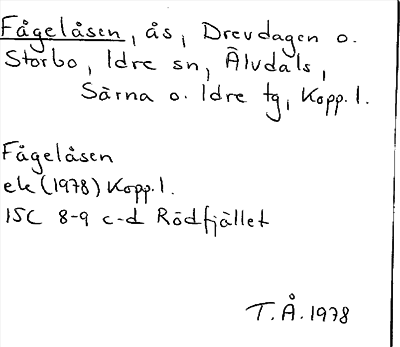 Fågelåsen, ås, Drevdagen o.
Storbo, Idre sn, Älvdals,
Särna o. Idre tg, Kopp. l.
Fågelåsen
ek (1978) Kopp. l.
15C 8-9 c-d Rödfjället
T. Å. 1978